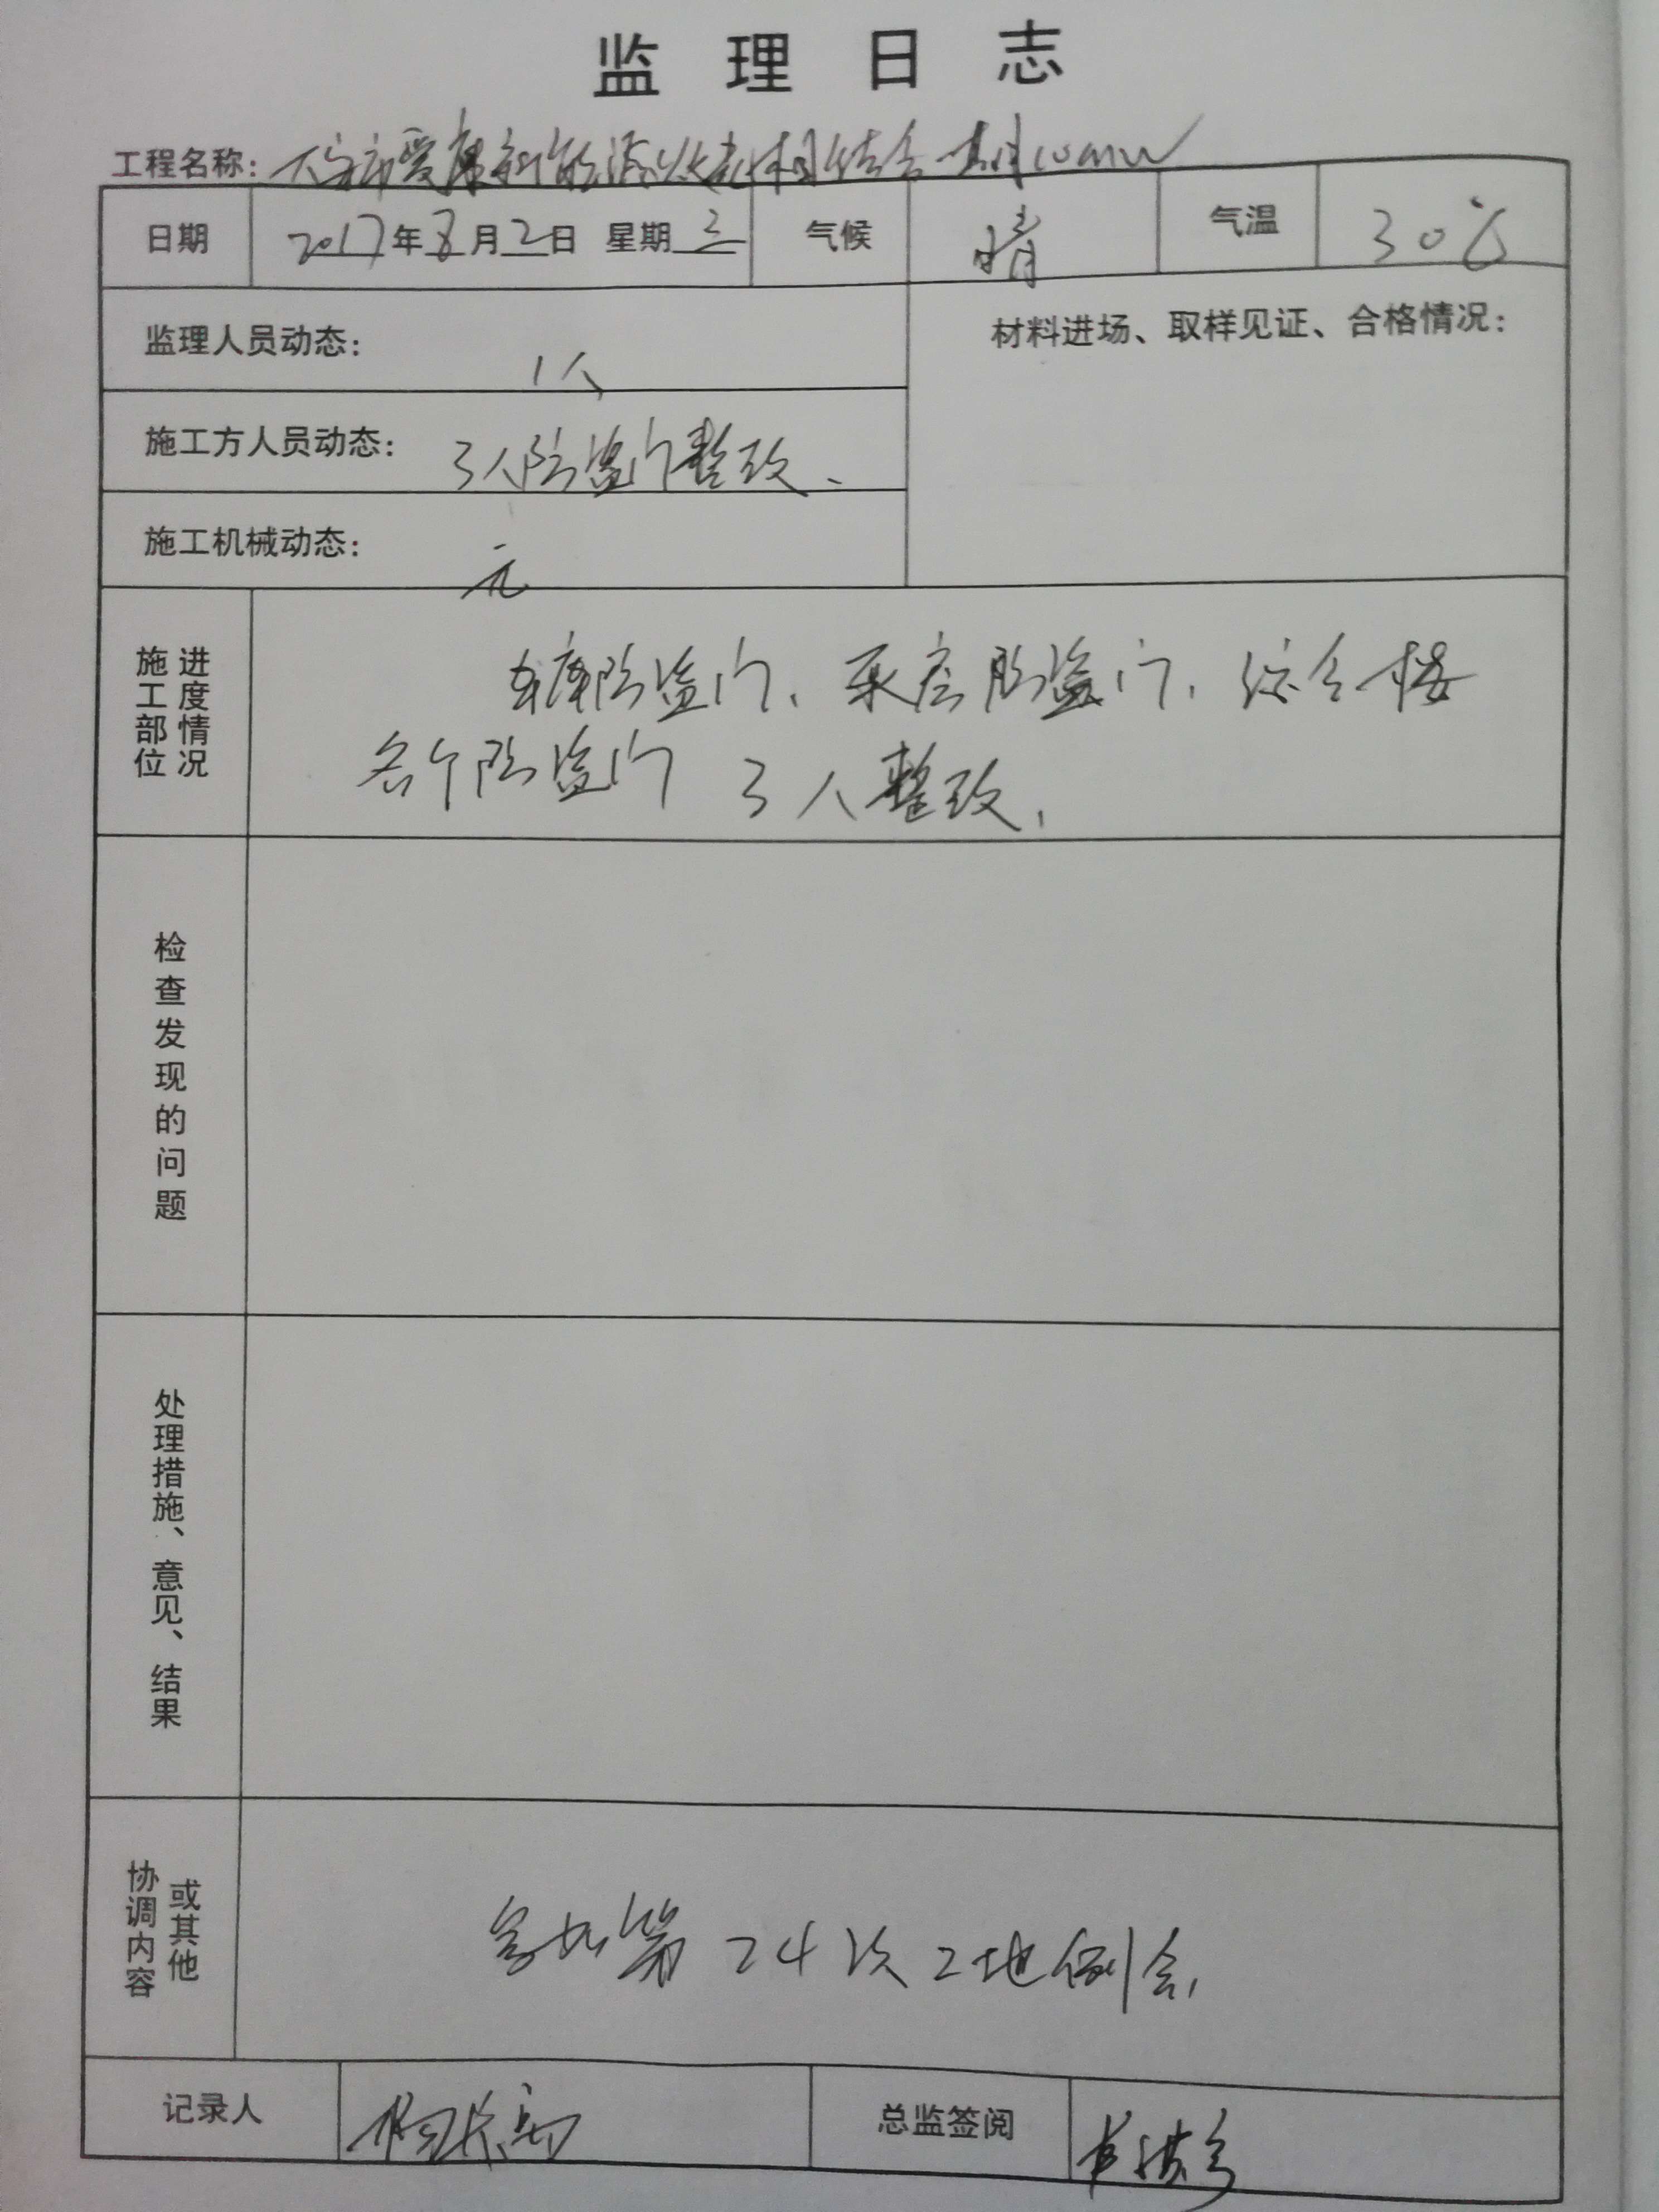 监理日志
工程名称：
日期 2017年8月2日 星期三 气候 晴 气温 30℃
监理人员动态： 1人
材料进场、取样见证、合格情况：
施工方人员动态： 3人防盗门整改、
施工机械动态： 无
施工部位 进度情况
车库防盗门、泵房防盗门、综合楼
各个防盗门 3人整改、
检查发现的问题
处理措施、意见、结果
协调内容 或其他
参加第24次工地例会、
记录人
总监签阅